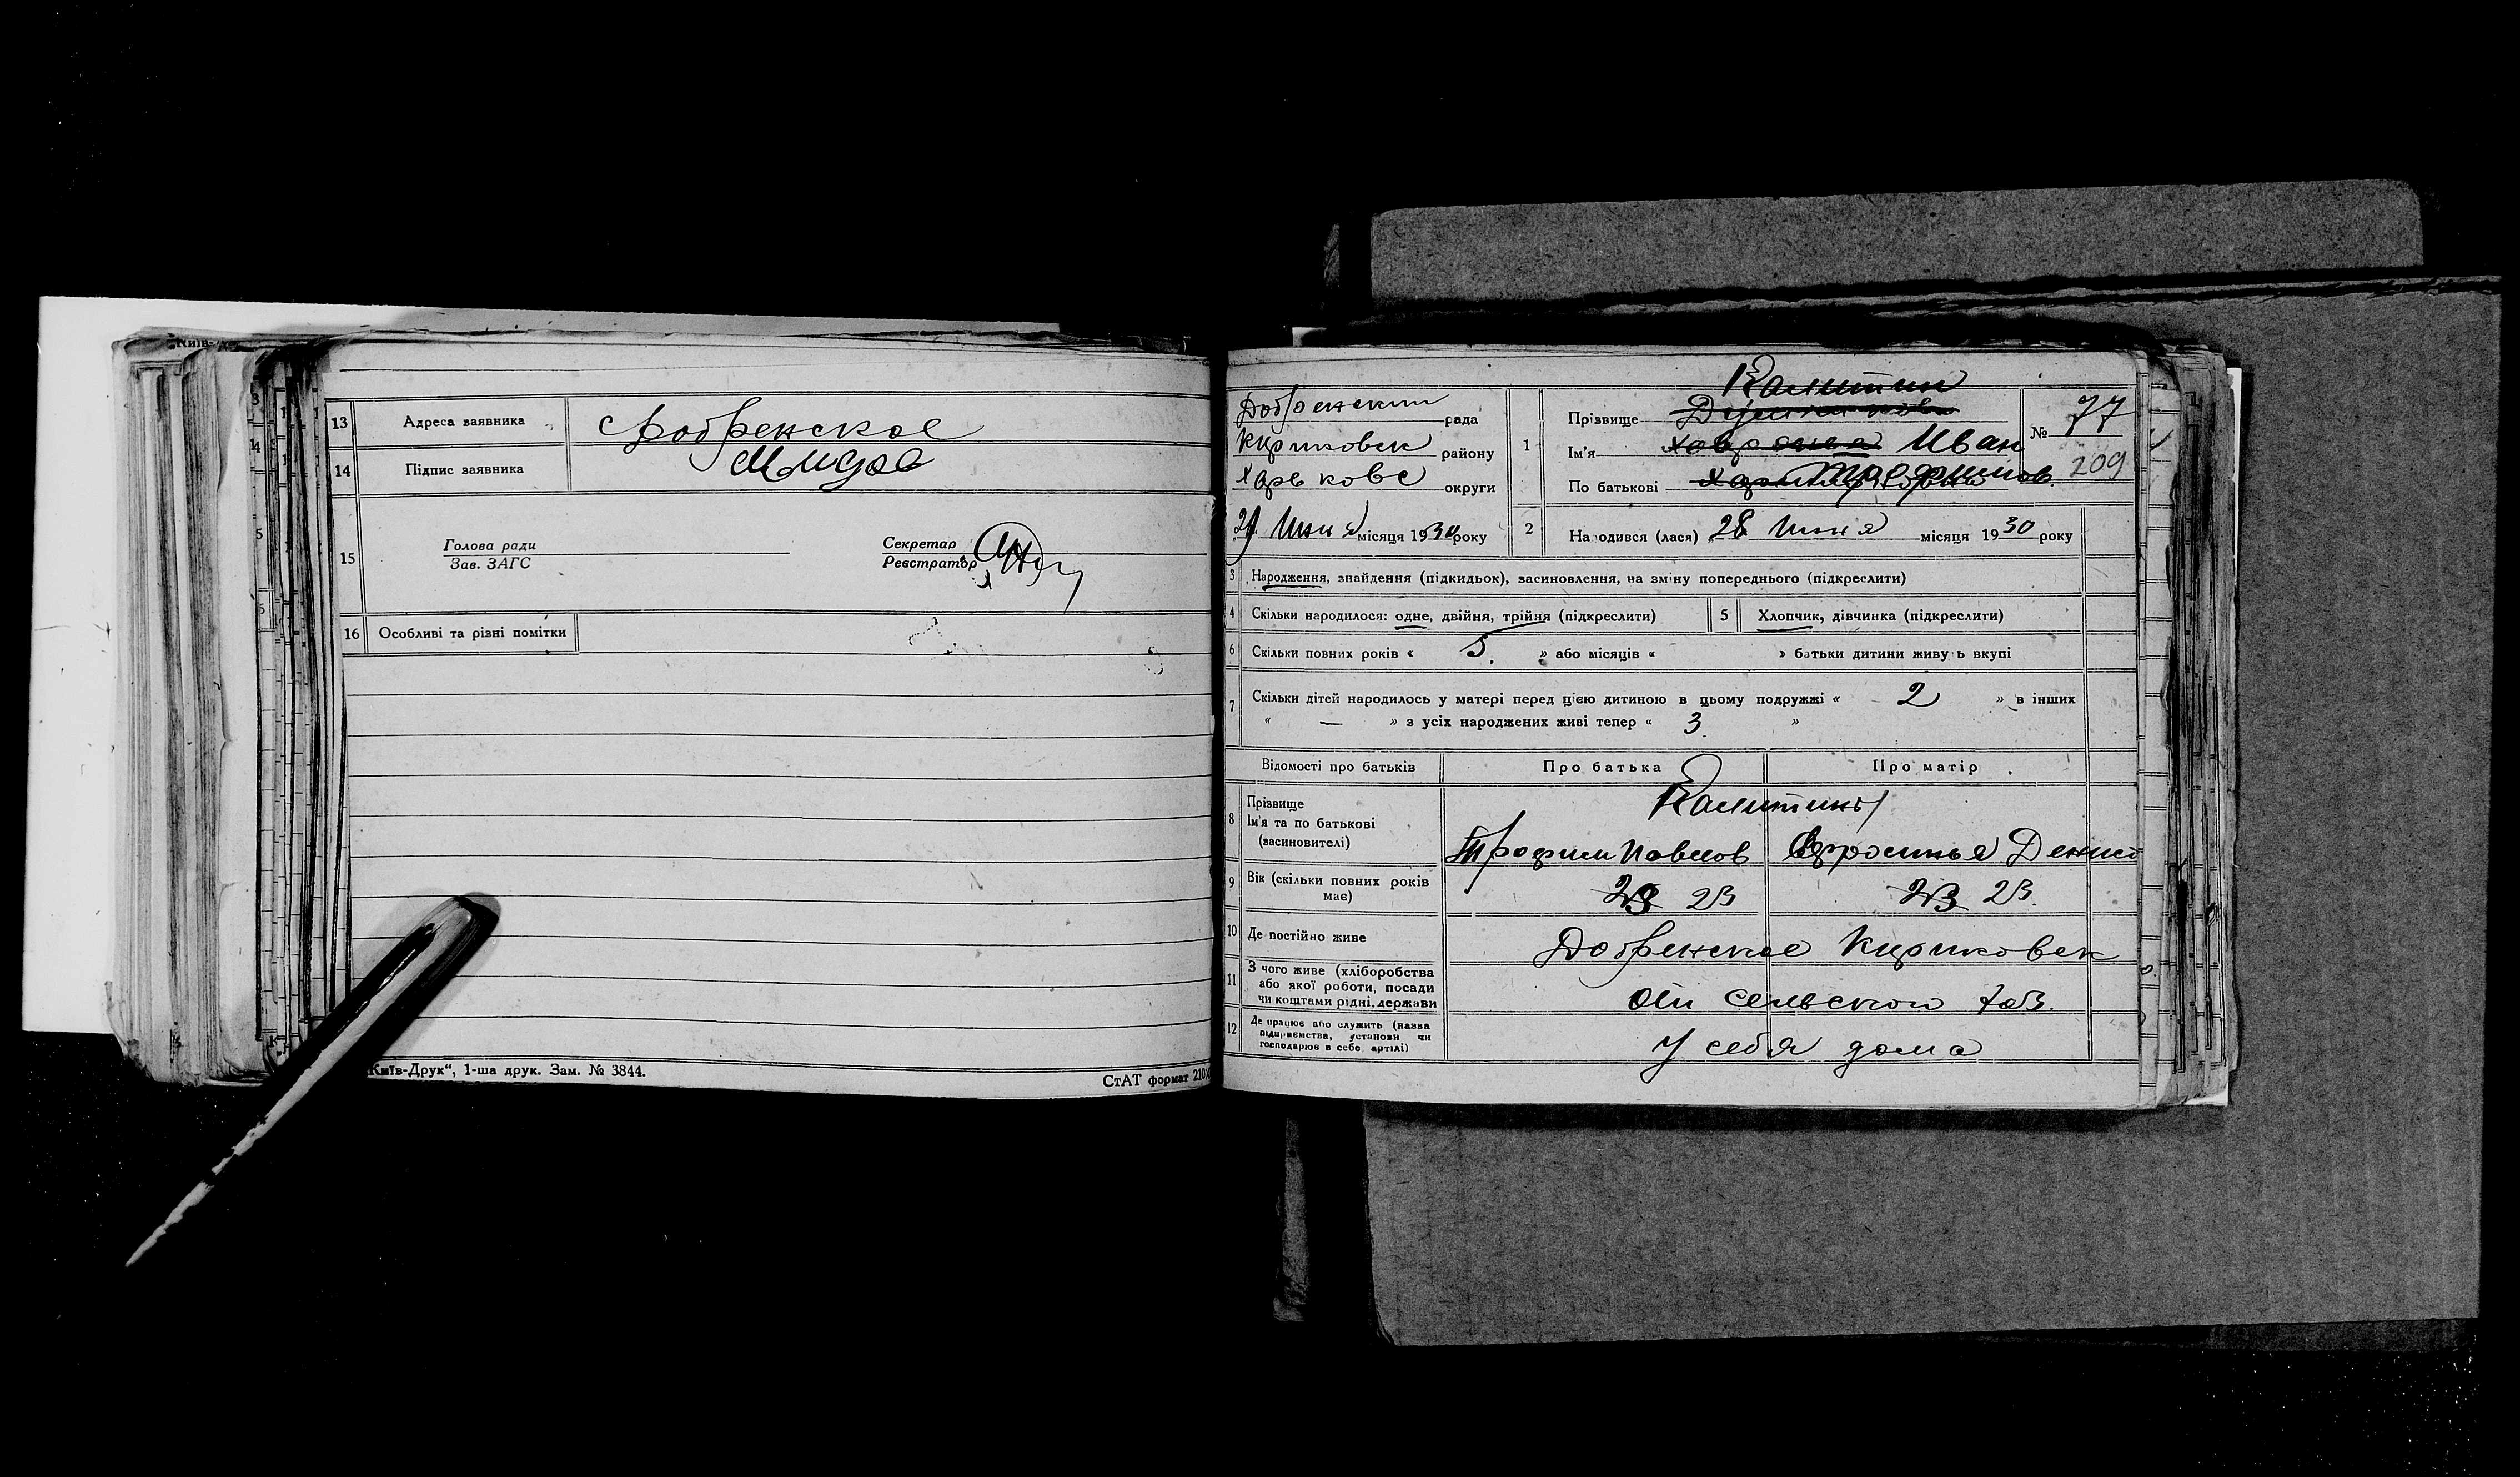 13 Адреса заявника Добренское
14 Підпис заявника
15 Голова ради
Зав. ЗАГС
Секретар
Реєстратор
16 Особливі та різні помітки
Київ-Друк“, 1-ша друк. Зам. № 3844.
СтАТ формат 210
Добренский рада
района
Харьковс округи
29 июня місяця 1930 року
1 Прізвище Калитин
Ім'я Иван
По батькові Трофимов.
№ 77
209
2 Народився (лася) 28 июня місяця 1930 року
3 Народження, знайдення (підкидьок), засиновлення, на зміну попереднього (підкреслити)
4 Скільки народилося: одне, двійня, трійня (підкреслити) 5 Хлопчик, дівчинка (підкреслити)
6 Скільки повних років « 5 » або місяців « » батьки дитини живуть вкупі
7 Скільки дітей народилось у матері перед цією дитиною в цьому подружжі « 2 » в інших
« — » з усіх народжених живі тепер « 3 »
Відомості про батьків Про батька Про матір
8 Прізвище Калитины
Ім'я та по батькові
(засиновителі) Трофим Павлов Денисо
9 Вік (скільки повних років
має) 23 23
10 Де постійно живе Добренское
11 З чого живе (хліборобства
або якої роботи, посади
чи коштами рідні, держави От сельского хоз.
12 Де працює або служить (назва
підприємства, установи чи
господарює в себе, артілі) У себя дома